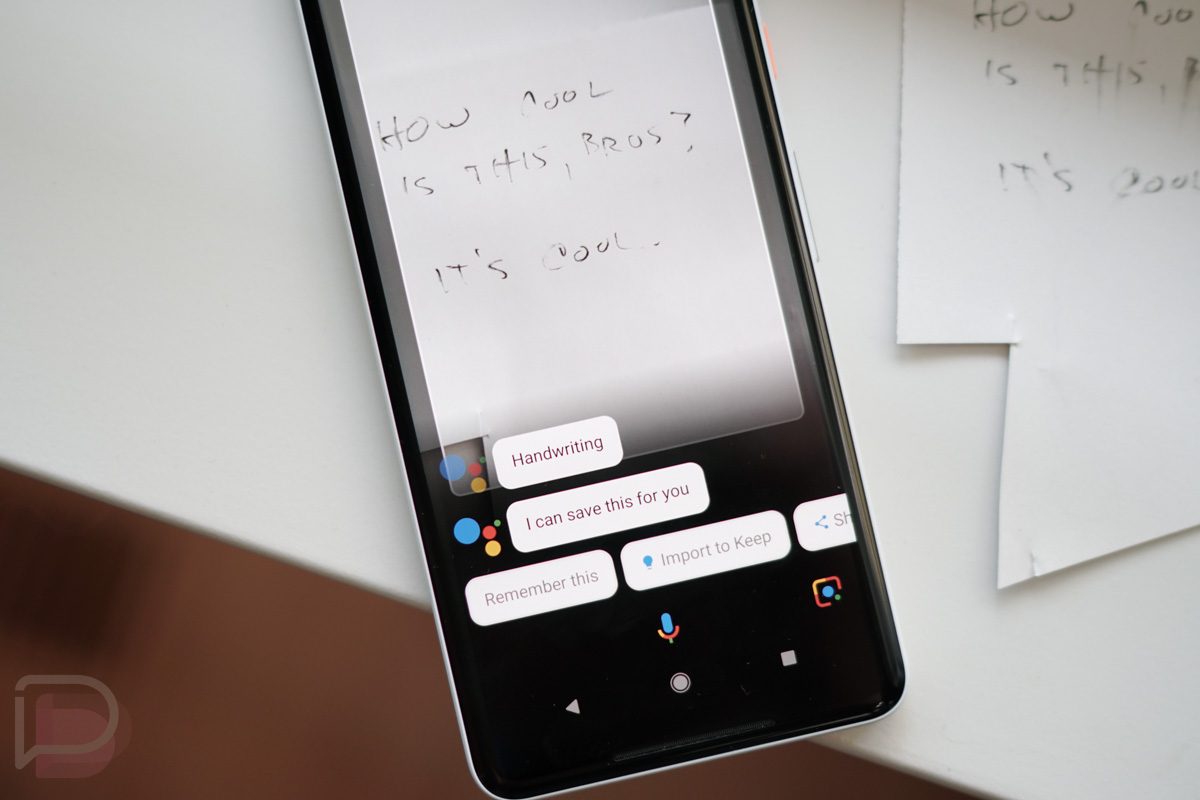 HOW COOL
IS THIS, BROS?
IT'S COOL.
HOW COO
IS THIS, B
IT'S COOL
Handwriting
I can save this for you
Remember this
Import to Keep
Sh